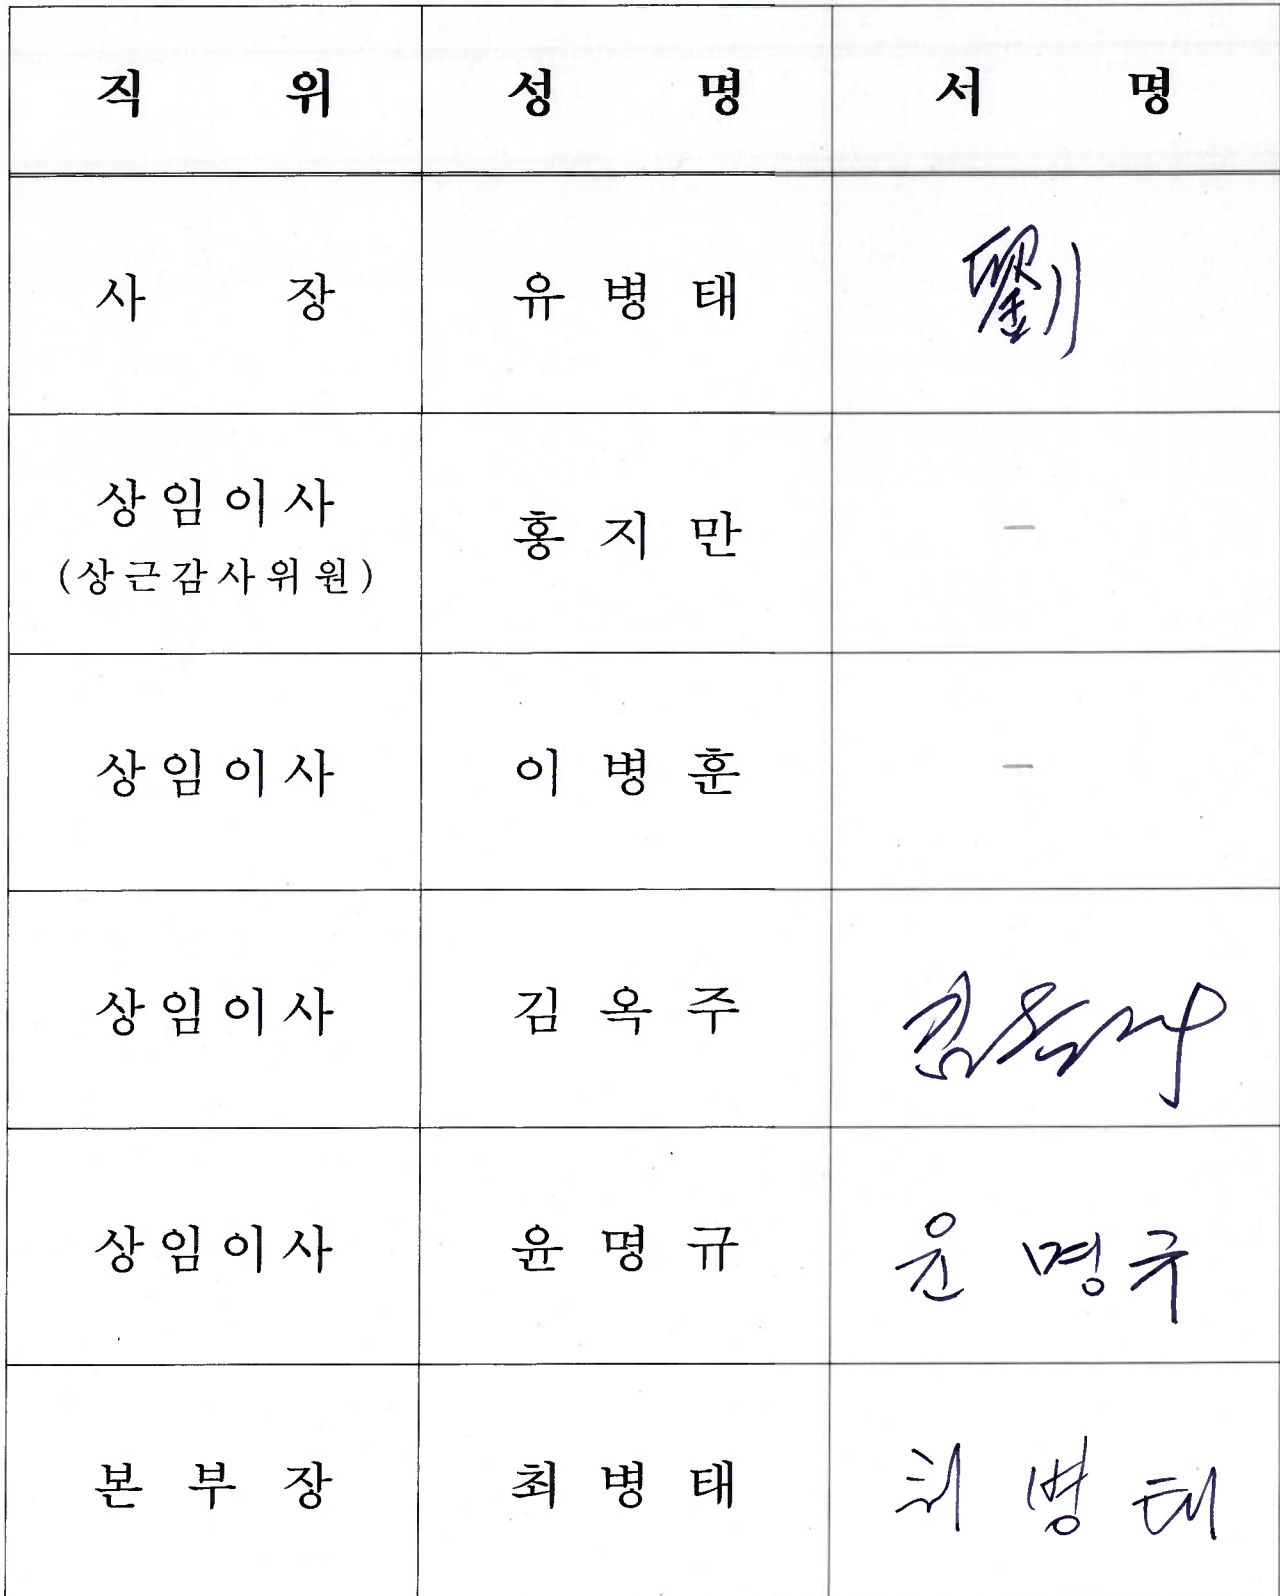 직 위 성 명 서 명
사 장 유 병 태 劉
상임이사
(상근감사위원) 홍 지 만 -
상임이사 이 병 훈 -
상임이사 김 옥 주 김옥주
상임이사 윤 명 규 윤 명규
본 부 장 최 병 태 최 병 태